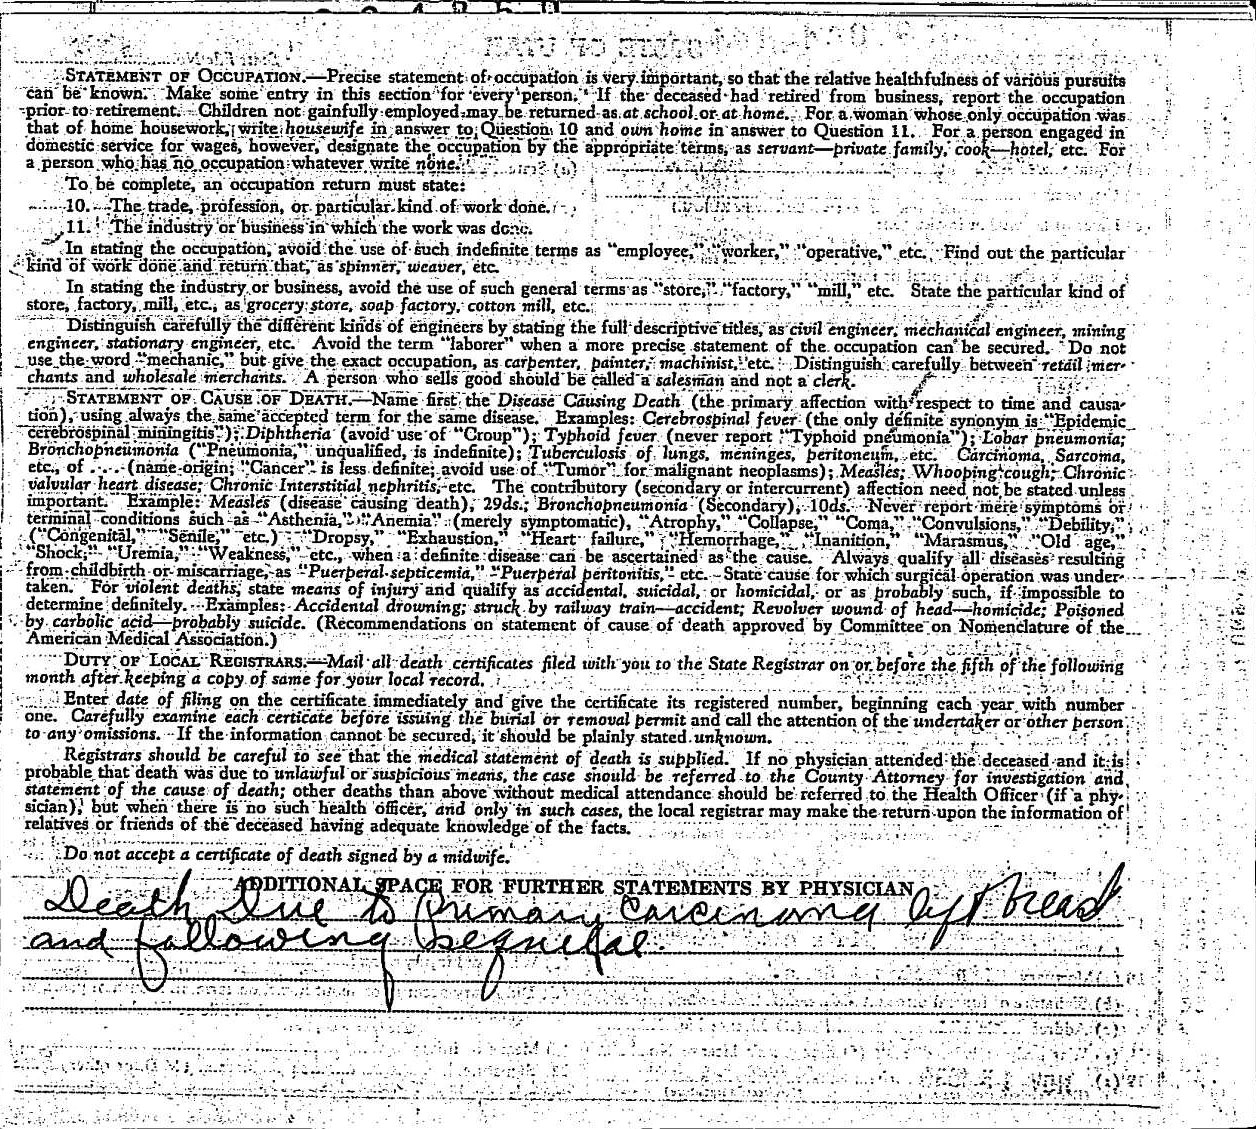 STATE OF UTAH
STATEMENT OF OCCUPATION.—Precise statement of occupation is very important, so that the relative healthfulness of various pursuits
can be known. Make some entry in this section for every person. If the deceased had retired from business, report the occupation
prior to retirement. Children not gainfully employed may be returned as at school or at home. For a woman whose only occupation was
that of home housework, write housewife in answer to Question 10 and own home in answer to Question 11. For a person engaged in
domestic service for wages, however, designate the occupation by the appropriate terms, as servant—private family, cook—hotel, etc. For
a person who has no occupation whatever write none.
To be complete, an occupation return must state:
10. The trade, profession, or particular kind of work done.
11. The industry or business in which the work was done.
In stating the occupation, avoid the use of such indefinite terms as "employee," "worker," "operative," etc. Find out the particular
kind of work done and return that, as spinner, weaver, etc.
In stating the industry or business, avoid the use of such general terms as "store," "factory," "mill," etc. State the particular kind of
store, factory, mill, etc., as grocery store, soap factory, cotton mill, etc.
Distinguish carefully the different kinds of engineers by stating the full descriptive titles, as civil engineer, mechanical engineer, mining
engineer, stationary engineer, etc. Avoid the term "laborer" when a more precise statement of the occupation can be secured. Do not
use the word "mechanic," but give the exact occupation, as carpenter, painter, machinist, etc. Distinguish carefully between retail mer-
chants and wholesale merchants. A person who sells good should be called a salesman and not a clerk.
STATEMENT OF CAUSE OF DEATH.—Name first the Disease Causing Death (the primary affection with respect to time and causa-
tion), using always the same accepted term for the same disease. Examples: Cerebrospinal fever (the only definite synonym is "Epidemic
cerebrospinal miningitis"); Diphtheria (avoid use of "Croup"); Typhoid fever (never report "Typhoid pneumonia"); Lobar pneumonia;
Bronchopneumonia ("Pneumonia," unqualified, is indefinite); Tuberculosis of lungs, meninges, peritoneum, etc. Carcinoma, Sarcoma,
etc., of .... (name origin; "Cancer" is less definite; avoid use of "Tumor" for malignant neoplasms); Measles; Whooping cough; Chronic
valvular heart disease; Chronic Interstitial nephritis, etc. The contributory (secondary or intercurrent) affection need not be stated unless
important. Example: Measles (disease causing death), 29ds.; Bronchopneumonia (Secondary), 10ds. Never report mere symptoms or
terminal conditions such as "Asthenia," "Anemia" (merely symptomatic), "Atrophy," "Collapse," "Coma," "Convulsions," "Debility,"
("Congenital," "Senile," etc.) "Dropsy," "Exhaustion," "Heart failure," "Hemorrhage," "Inanition," "Marasmus," "Old age,"
"Shock," "Uremia," "Weakness," etc., when a definite disease can be ascertained as the cause. Always qualify all diseases resulting
from childbirth or miscarriage, as "Puerperal septicemia," "Puerperal peritonitis," etc. State cause for which surgical operation was under-
taken. For violent deaths, state means of injury and qualify as accidental, suicidal, or homicidal, or as probably such, if impossible to
determine definitely. Examples: Accidental drowning; struck by railway train—accident; Revolver wound of head—homicide; Poisoned
by carbolic acid—probably suicide. (Recommendations on statement of cause of death approved by Committee on Nomenclature of the
American Medical Association.)
DUTY OF LOCAL REGISTRARS.—Mail all death certificates filed with you to the State Registrar on or before the fifth of the following
month after keeping a copy of same for your local record.
Enter date of filing on the certificate immediately and give the certificate its registered number, beginning each year with number
one. Carefully examine each certicate before issuing the burial or removal permit and call the attention of the undertaker or other person
to any omissions. If the information cannot be secured, it should be plainly stated unknown.
Registrars should be careful to see that the medical statement of death is supplied. If no physician attended the deceased and it is
probable that death was due to unlawful or suspicious means, the case should be referred to the County Attorney for investigation and
statement of the cause of death; other deaths than above without medical attendance should be referred to the Health Officer (if a phy-
sician), but when there is no such health officer, and only in such cases, the local registrar may make the return upon the information of
relatives or friends of the deceased having adequate knowledge of the facts.
Do not accept a certificate of death signed by a midwife.
ADDITIONAL SPACE FOR FURTHER STATEMENTS BY PHYSICIAN
Death Due to Primary Carcinoma left breast
and following sequelae.